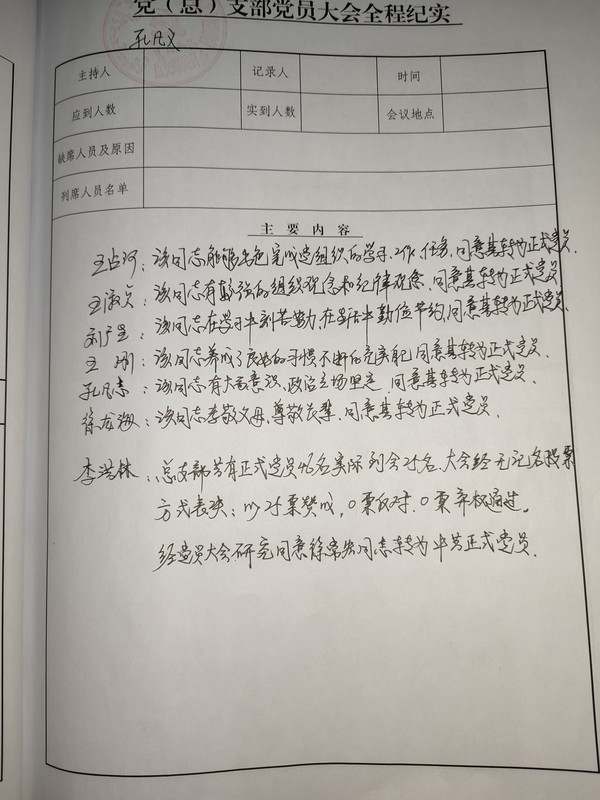 党（总）支部党员大会全程纪实
孔凡义
主持人 记录人 时间
应到人数 实到人数 会议地点
缺席人员及原因
列席人员名单
主要内容
王占河：该同志能够出色完成党组织的学习、工作、任务，同意其转为正式党员。
王淑贞：该同志有较强的组织观念和纪律观念，同意其转为正式党员
刘广生：该同志在学习中刻苦努力，在生活中勤俭节约，同意其转为正式党员
王刚：该同志养成了良好的习惯不断的充实自己，同意其转为正式党员。
孔凡志：该同志有大局意识，政治立场坚定，同意其转为正式党员
徐龙海：该同志孝敬父母，尊敬长辈，同意其转为正式党员。
李洪林：总支部共有正式党员 名实际到会 名，大会经无记名投票
方式表决：以 票赞成，0票反对，0票弃权通过。
经党员大会研究同意徐常 同志转为中共正式党员。